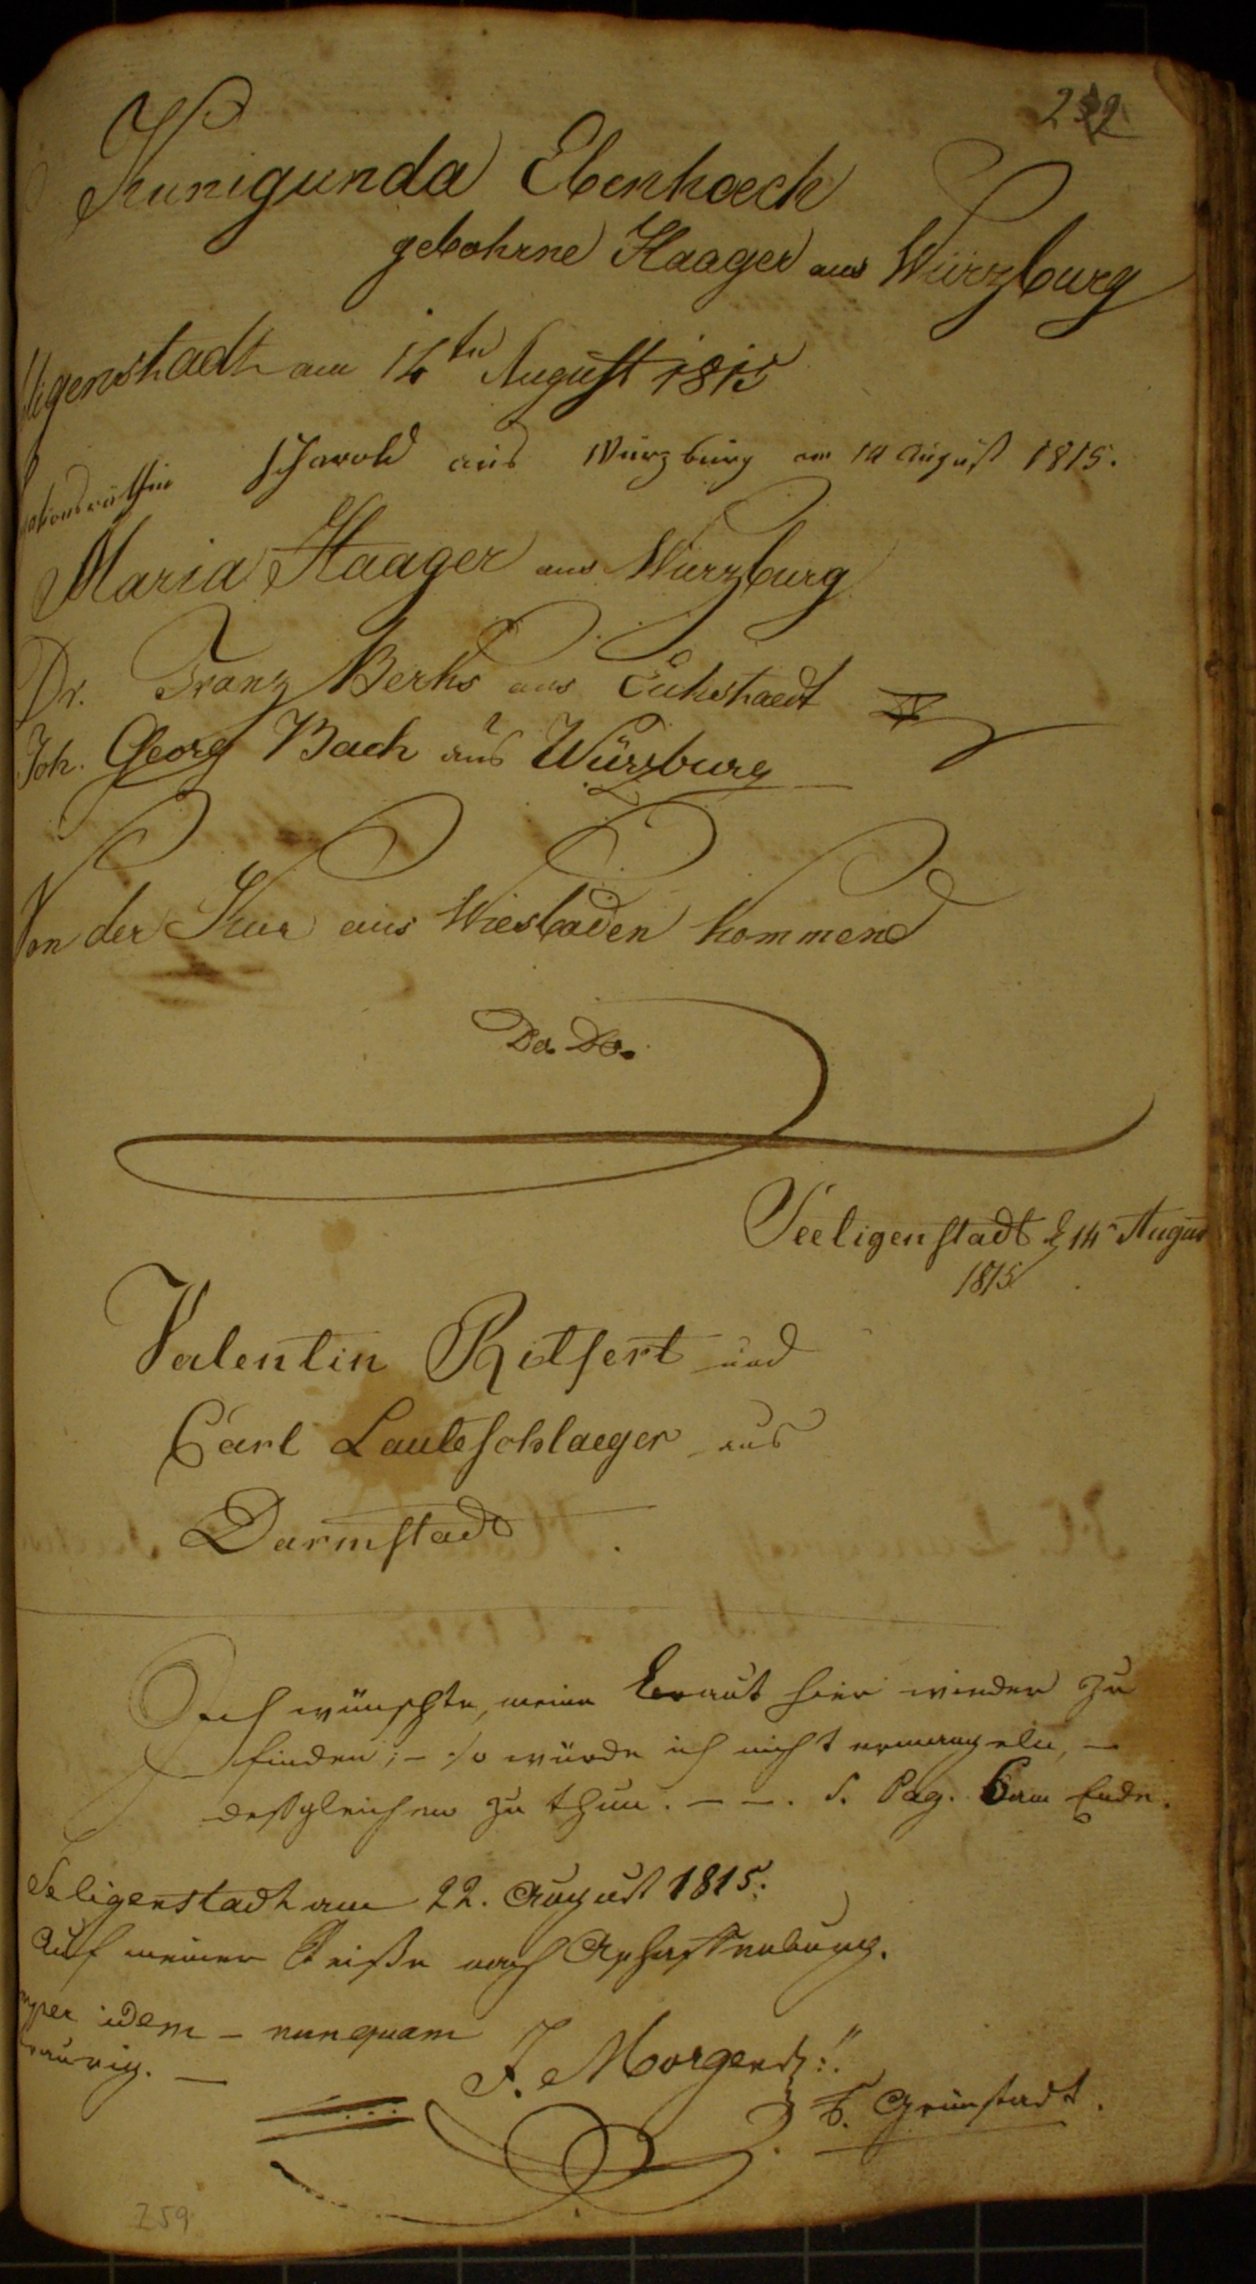 232
Kunigunda Ebenhoech
gebohrne Haager aus Würzburg
ligenstadt am 14ten August 1815
Scharold aus Würzburg am 14 August 1815.
ationsräthin
Maria Haager aus Würzburg
Dr. Franz Berks aus
Joh. Georg Bach aus Würzburg
Von der Kur aus Wiesbaden kommend
Do. Do.
Seeligenstadt d 14n Augus
1815
Valentin Ritsert und
Carl Lauteschlaeger aus
Darmstadt.
Ich wünschte, meine Braut hier wieder zu
finden; – so würde ich nicht ermangeln, –
desßgleichen zu thun. – –. S. Pag. 6 am Ende.
Seligenstadt am 22. August 1815.
Auf meiner Reiße nach Aschaffenburg.
mper idem – nunquam
traurig. –
J. Morgen
Grünstadt.
259